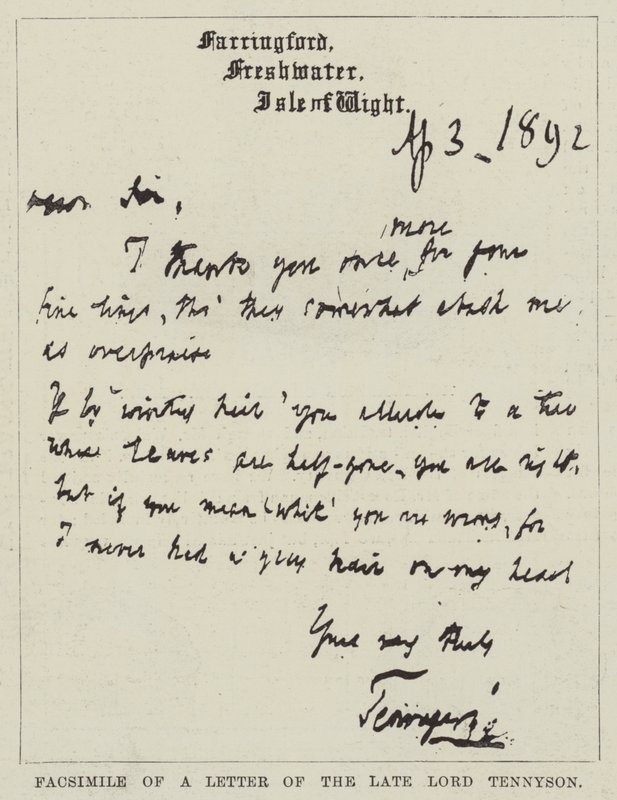 Farringford,
Freshwater,
Isle of Wight.
Ap 3. 1892
Dear Sir,
more
I thank you once for your
fine lines, tho' they somewhat abash me
as overpraise
If by 'wintry hair' you allude to a tree
whose leaves are half-gone, you are right,
but if you mean 'white' you are wrong, for
I never had a grey hair on my head
Yours very truly
Tennyson
FACSIMILE OF A LETTER OF THE LATE LORD TENNYSON.